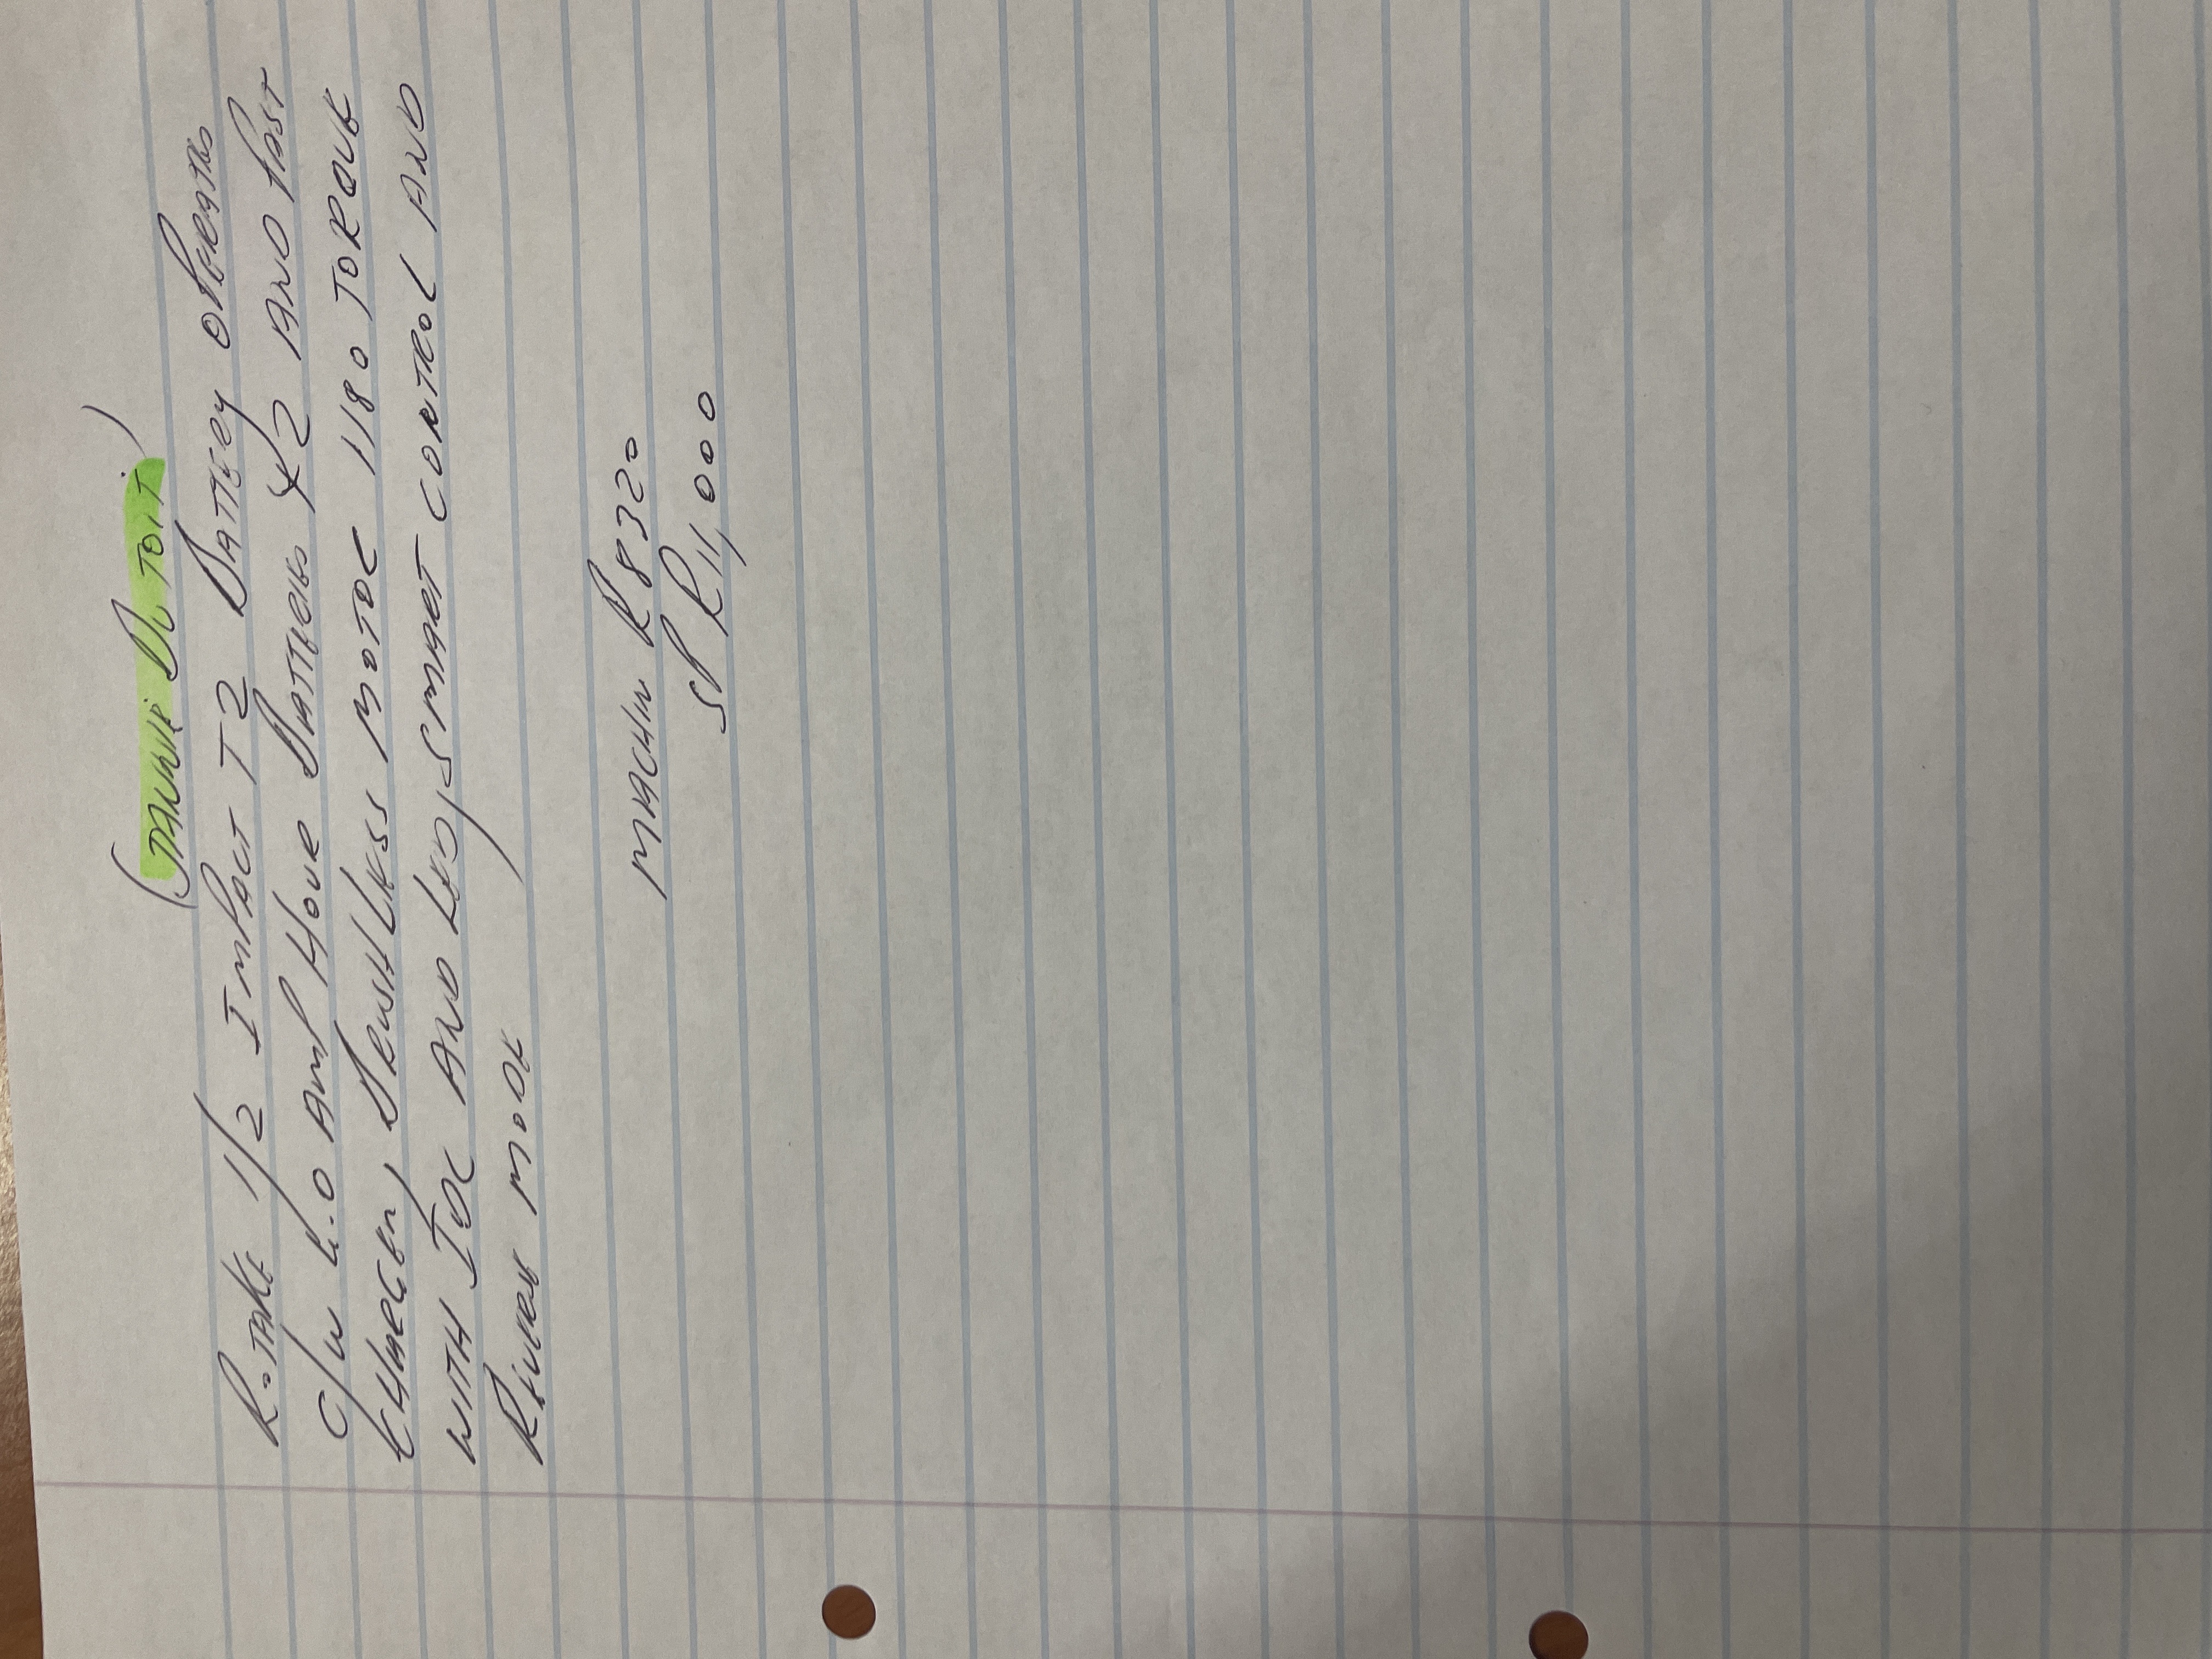 (JANNIE DU TOIT)
R.TAKE 1/2 IMPACT T2 BATTERY OPERATED
C/W 4.0 AMP HOUR BATTERIES X2 AND FAST
CHARGER, BRUSHLESS MOTOR 1180 TORQUE
WITH IOC AND LED, SMART CONTROL AND
REVERSE MODE
MACHIN R8320
SP R11,000